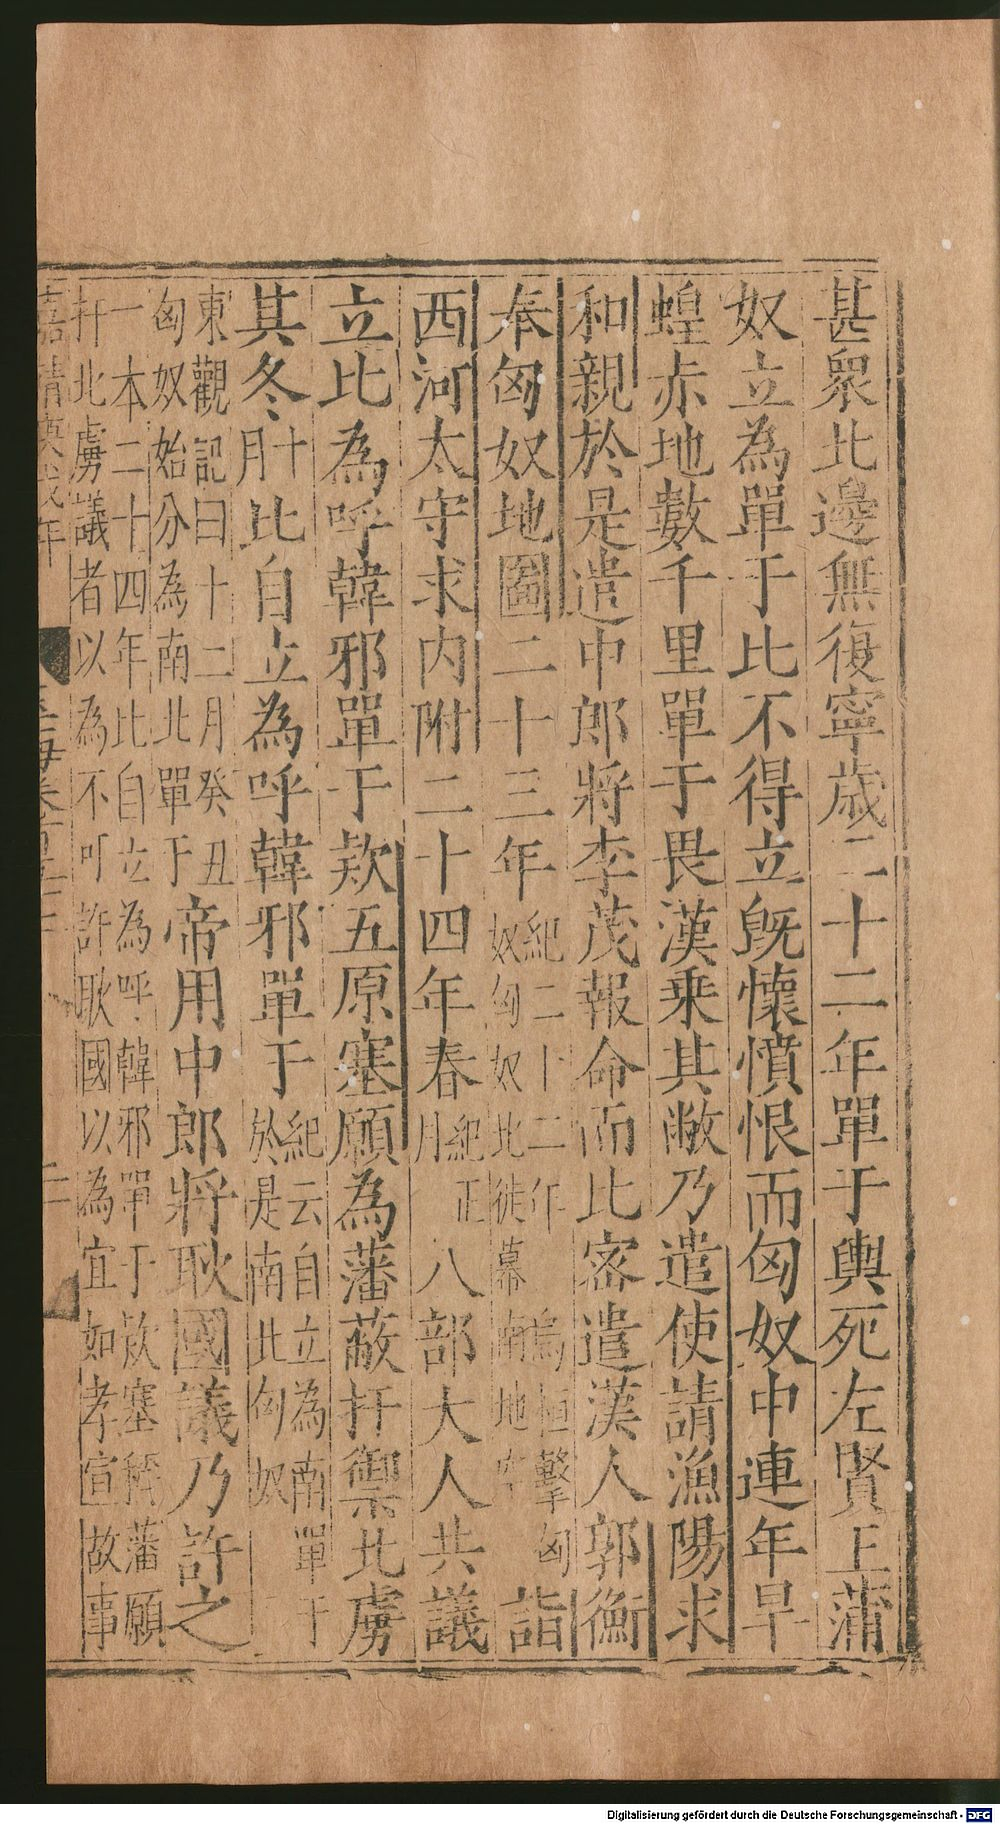 甚衆北邊無復寧歲二十二年單于輿死左賢王蒲
奴立為單于比不得立旣懷憤恨而匈奴中連年旱
蝗赤地數千里單于畏漢乗其敝乃遣使請漁陽求
和親於是遣中郎將李茂報命而比密遣漢人郭衡
奉匈奴地圖二十三年
紀二十二年烏桓擊匈
奴匈奴北徙幕南地空
詣
西河太守求内附二十四年春
紀正
月
八部大人共議
立比為呼韓邪單于欵五原塞願為藩蔽扞禦北虜
其冬
十
月
比自立為呼韓邪單于
紀云自立為南單于
於是南北匈奴
東觀記曰十二月癸丑
匈奴始分為南北單于
帝用中郎將耿國議乃許之
一本二十四年比自立為呼韓邪單于欵塞稱藩願
扞北虜議者以為不可許耿國以為宜如孝宣故事
嘉靖
年
玉海卷
Digitalisierung gefördert durch die Deutsche Forschungsgemeinschaft - DFG